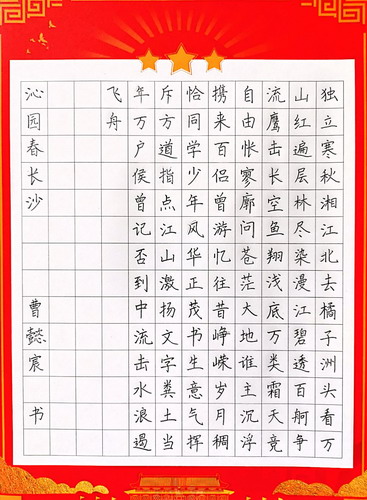 独立寒秋湘江北去橘子洲头看万
山红遍层林尽染漫江碧透百舸争
流鹰击长空鱼翔浅底万类霜天竞
自由怅寥廓问苍茫大地谁主沉浮
携来百侣曾游忆往昔峥嵘岁月稠
恰同学少年风华正茂书生意气挥
斥方道指点江山激扬文字粪土当
年万户侯曾记否到中流击水浪遏
飞舟
沁园春长沙 曹懿宸 书